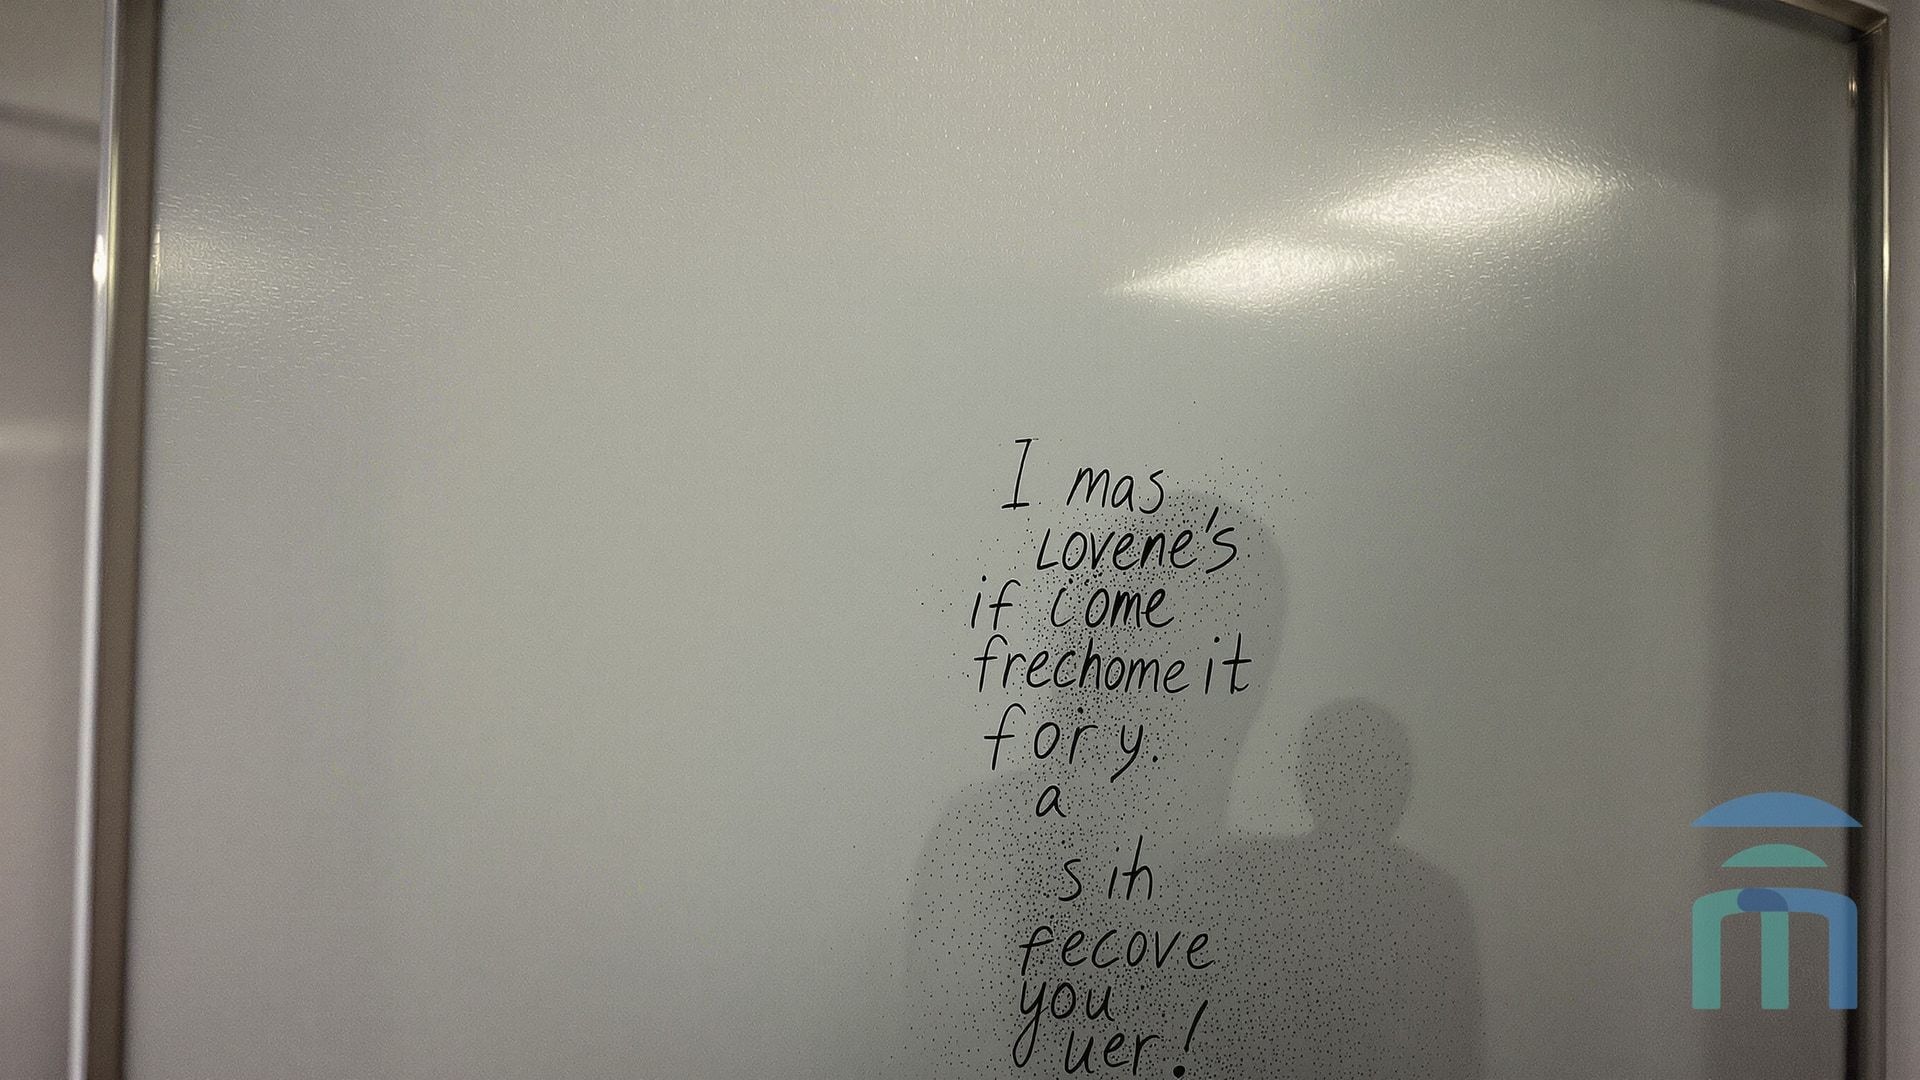 I mas
Lovene's
if come
frechome it
for y.
a
s ih
fecove
you
uer!